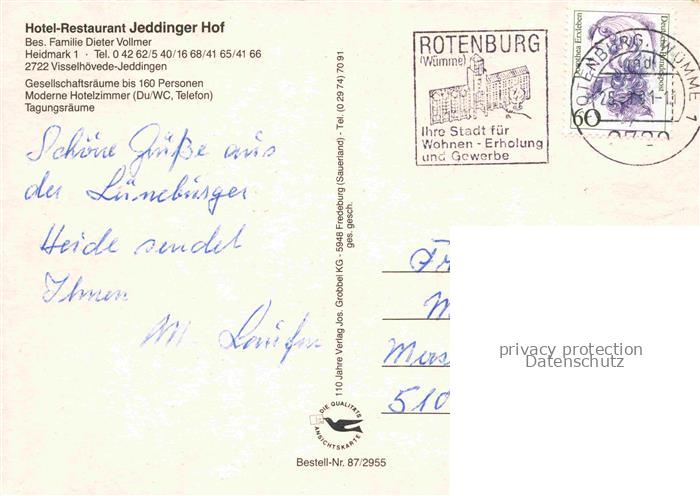 Hotel-Restaurant Jeddinger Hof
Bes. Familie Dieter Vollmer
Heidmark 1 · Tel. 0 42 62/5 40/16 68/41 65/41 66
2722 Visselhövede-Jeddingen
Gesellschaftsräume bis 160 Personen
Moderne Hotelzimmer (Du/WC, Telefon)
Tagungsräume
Schöne Grüße aus
der Lüneburger
Heide sendet
Ihnen
M. Laufer
110 Jahre Verlag Jos. Grobbel KG - 5948 Fredeburg (Sauerland) - Tel. (0 29 74) 70 91
ges. gesch.
DIE QUALITÄTS
ANSICHTSKARTE
Bestell-Nr. 87/2955
ROTENBURG
(Wümme)
Ihre Stadt für
Wohnen - Erholung
und Gewerbe
Dorothea Erxleben
Deutsche Bundespost
60
ROTENBURG, WÜMME
1
2720
Fr
M
Mas
510
privacy protection
Datenschutz